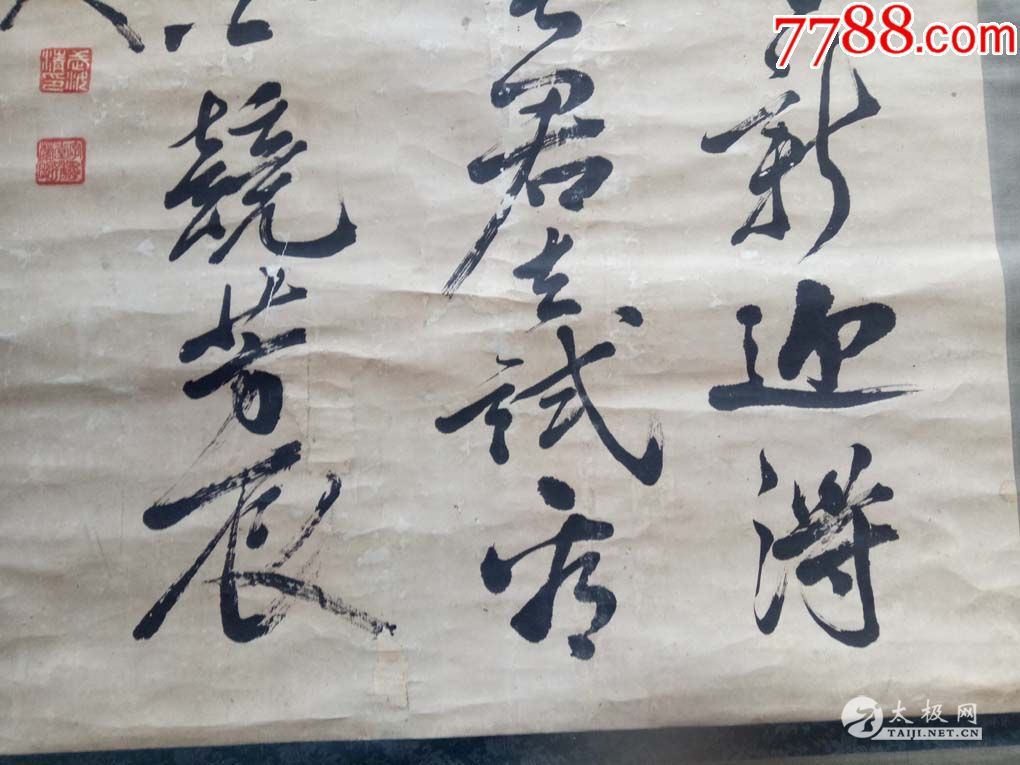 7788.com
新迎淂
君去試看
競芳辰
太极网
TAIJI.NET.CN